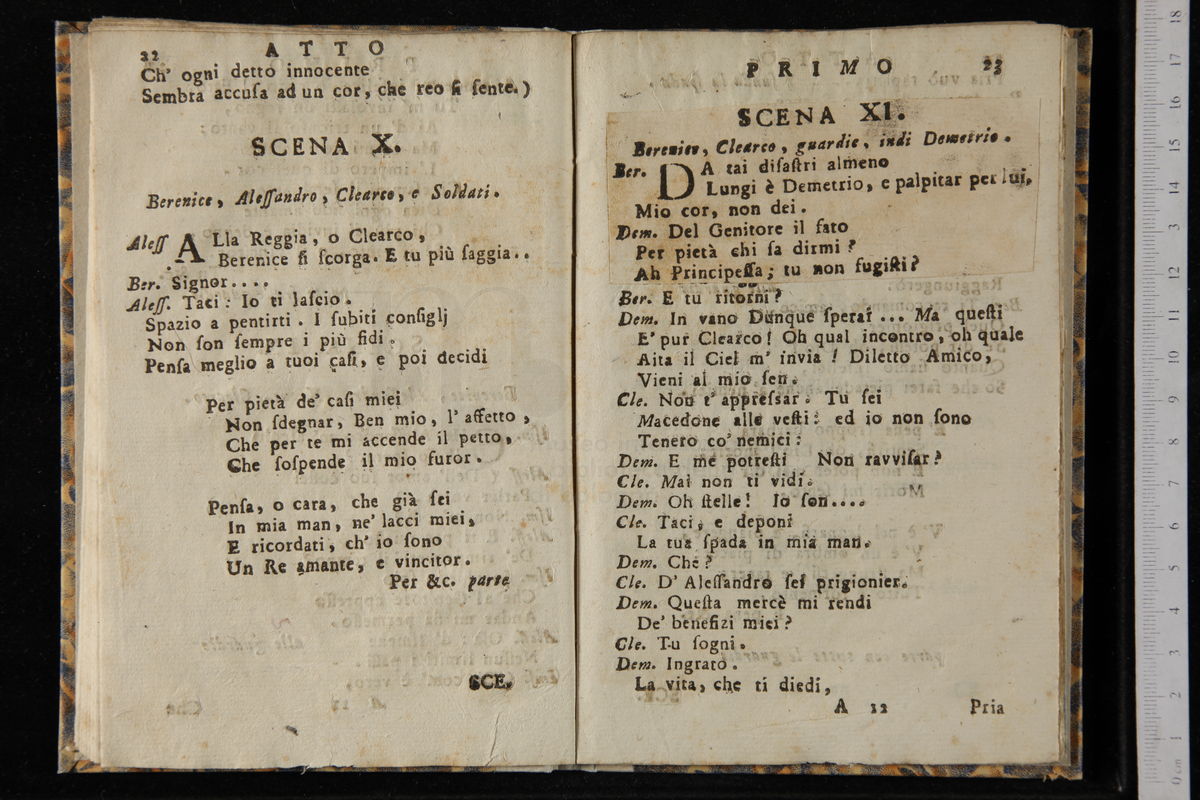 22 ATTO
Ch' ogni detto innocente
Sembra accuſa ad un cor, che reo ſi ſente.)
SCENA X.
Berenice, Aleſſandro, Clearco, e Soldati.
Aleſſ ALla Reggia, o Clearco,
Berenice ſi ſcorga. E tu più ſaggia..
Ber. Signor....
Aleſſ. Taci: Io ti laſcio.
Spazio a pentirti. I ſubiti conſiglj
Non ſon ſempre i più fidi.
Penſa meglio a tuoi caſi, e poi decidi
Per pietà de' caſi miei
Non ſdegnar, Ben mio, l' affetto,
Che per te mi accende il petto,
Che ſoſpende il mio furor.
Penſa, o cara, che già ſei
In mia man, ne' lacci miei,
E ricordati, ch' io ſono
Un Re amante, e vincitor.
Per &c. parte
SCE.
PRIMO 23
SCENA XI.
Berenice, Clearco, guardie, indi Demetrio.
Ber. DA tai diſaſtri almeno
Lungi è Demetrio, e palpitar per lui,
Mio cor, non dei.
Dem. Del Genitore il fato
Per pietà chi ſa dirmi?
Ah Principeſſa; tu non fugiſti?
Ber. E tu ritorni?
Dem. In vano Dunque ſperai ... Ma queſti
E' pur Clearco! Oh qual incontro, oh quale
Aita il Ciel m' invia! Diletto Amico,
Vieni al mio ſen.
Cle. Non t' appreſsar. Tu ſei
Macedone alle veſti: ed io non ſono
Tenero co' nemici:
Dem. E me potreſti Non ravviſar?
Cle. Mai non ti vidi.
Dem. Oh ſtelle! Io ſon....
Cle. Taci, e deponi
La tua ſpada in mia man.
Dem. Che?
Cle. D' Aleſſandro ſei prigionier.
Dem. Queſta mercè mi rendi
De' benefizi miei?
Cle. Tu ſogni.
Dem. Ingrato.
La vita, che ti diedi,
A 12 Pria